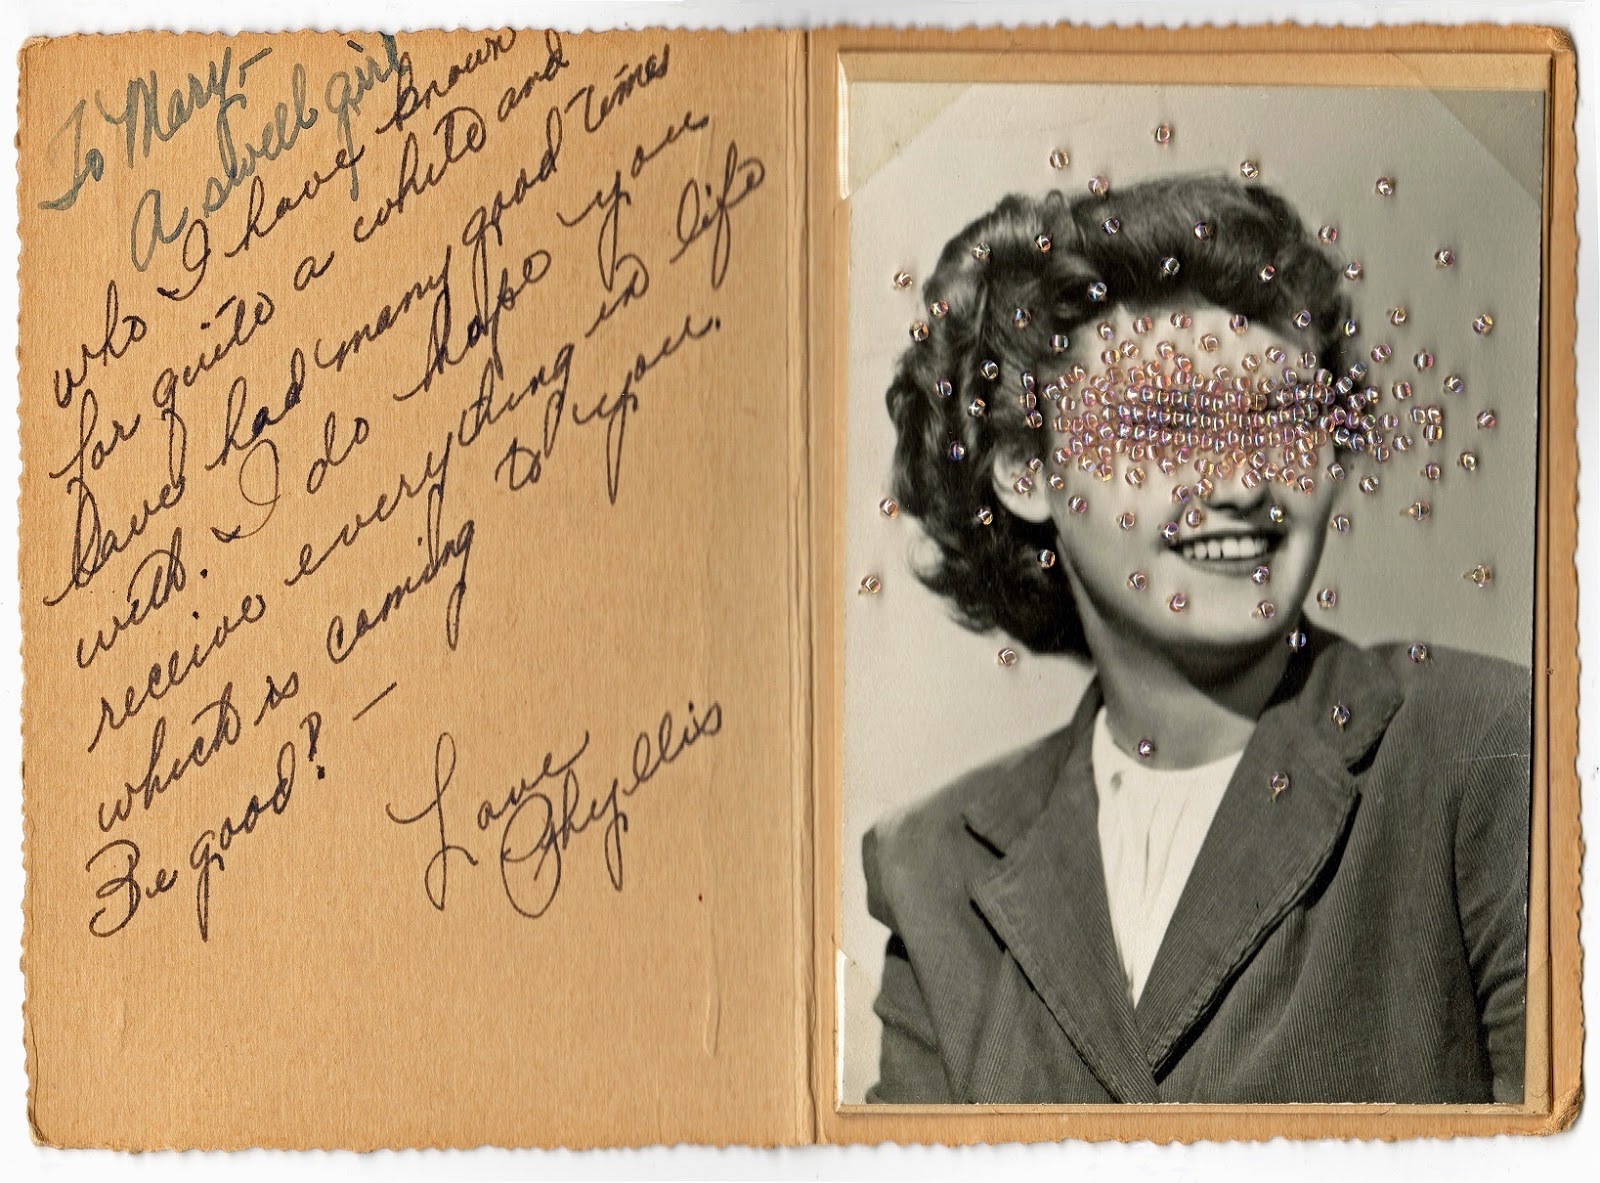 To Mary-
A swell girl
who I have known
for quite a while and
have had many good times
with. I do hope you
receive everything in life
which is coming to you.
Be good! -
Love
Phyllis